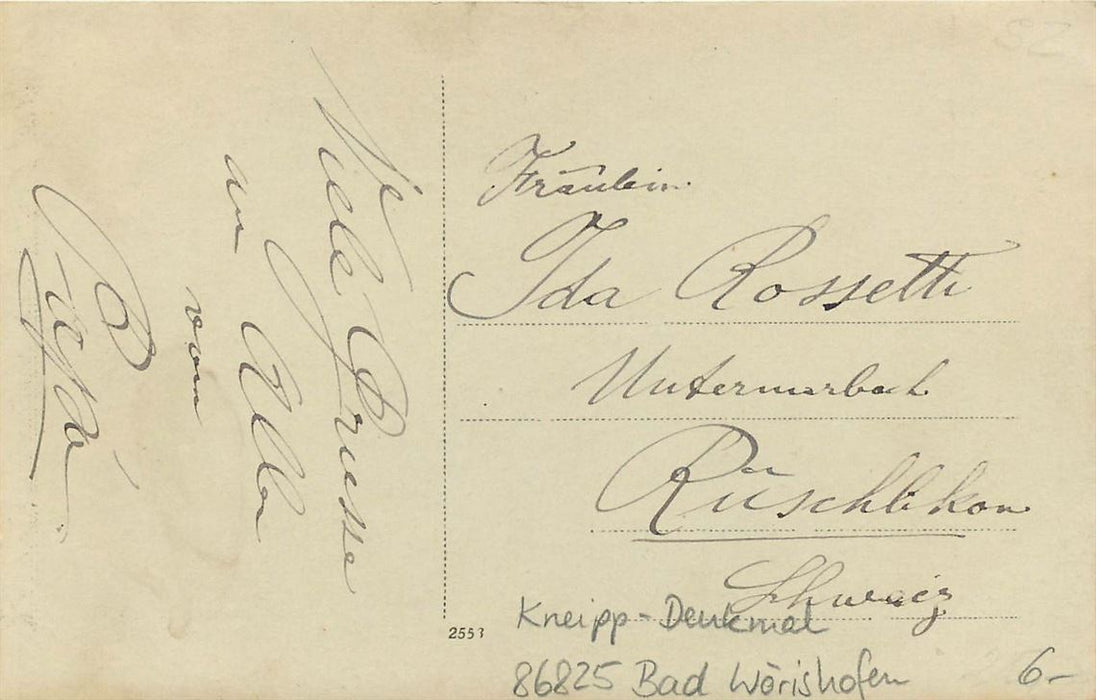 Viele Grüsse
an Alle
vom
Papa
Fräulein
Ida Rossetti
Untermurbach
Rüschlikon
Schweiz
2553
Kneipp-Denkmal
86825 Bad Wörishofen
6.-
SZ